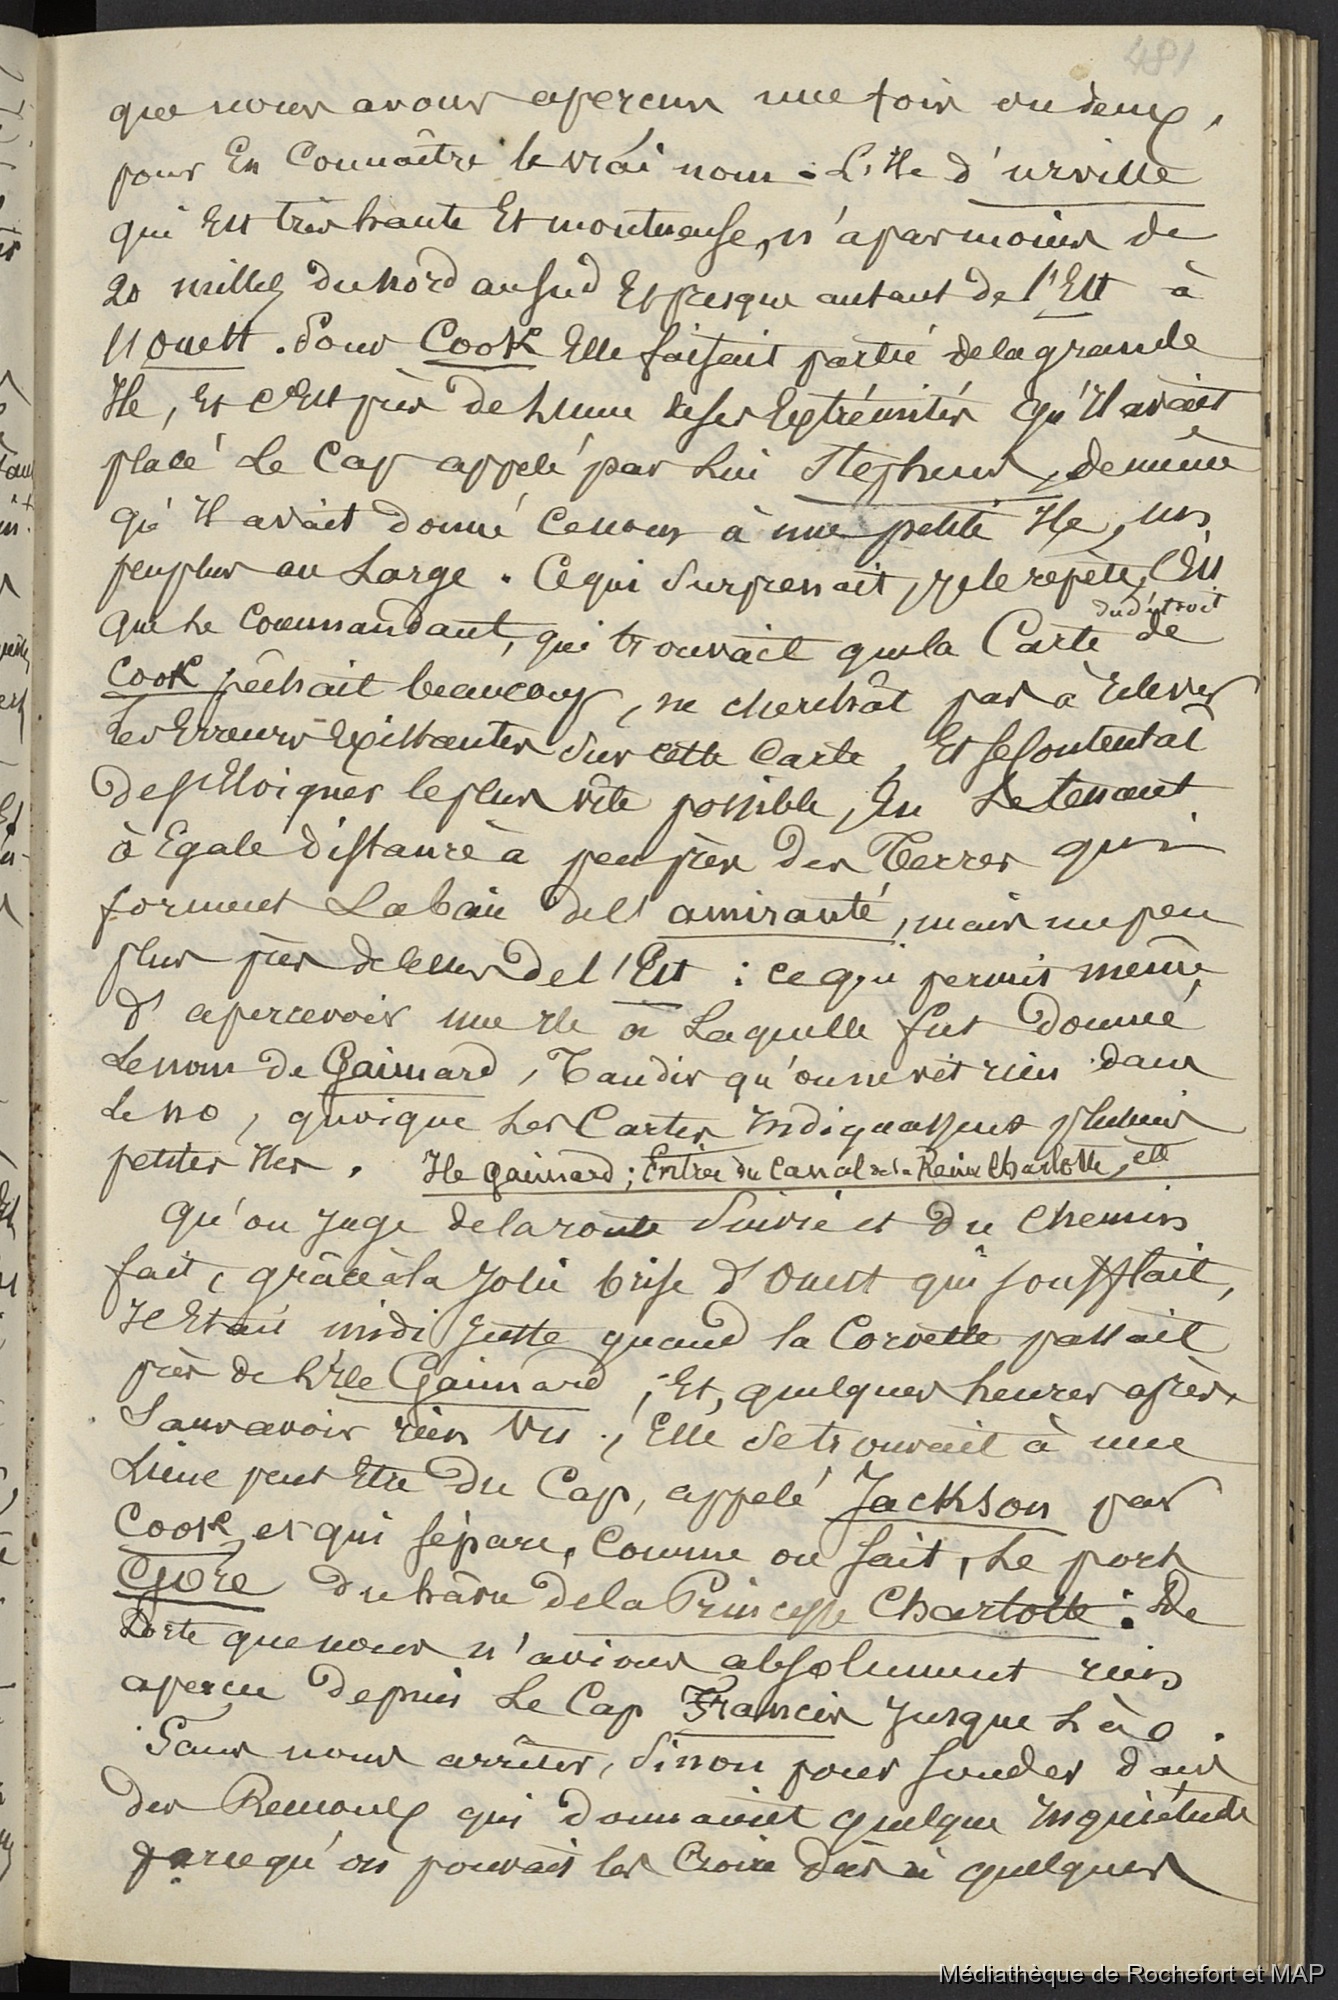 481
que nous avons apercus une fois ou deux,
pour En Connaître le vrai nom. L'Ile d'urville
qui Est très haute Et montueuse, n'a pas moins de
20 milles du nord au sud Et presque autant de l'Est à
l'ouest. Pour Cook Elle faisait partie de la grande
Ile, Et c'Est près de L'une de ses Extrémités qu'Il avait
placé Le Cap appelé par Lui Stephens, de même
qu'Il avait donné ce nom à une petite Ile, un
peu plus au Large. Ce qui Surprenait, je le repète, C'Est
du détroit
que Le Commandant, qui trouvait que la Carte de
Cook pêchait beaucoup, ne cherchât pas à relever
Les Erreurs Existantes sur cette Carte, Et se contentât
de s'Eloigner le plus vite possible, En se tenant
à Egale distance à peu près des Terres qui
forment La baie de l'amirauté, mais un peu
plus près de celles de l'Est : ce qui permit même
d'apercevoir une Ile à Laquelle fut donné
Le nom de Gaimard, Tandis qu'on ne vit rien dans
Le no, quoique Les Cartes Indiquassent plusieurs
petites Iles. Ile Gaimard; Entrée du Canal de la Reine Charlotte, etc
Qu'on Juge de la route Suivie et du Chemin
fait, grâce à la Jolie brise d'Ouest qui soufflait,
Il Etait midi Juste quand la Corvette passait
près de L'Ile Gaimard ; Et, quelques heures après,
Sans avoir rien Vu, Elle se trouvait à une
Lieue peut Etre du Cap, appelé Jackson par
Cook, et qui sépare, Comme on sait, Le port
Gore du hâvre de la Princesse Charlotte : De
Sorte que nous n'avions absolument rien
apercu depuis Le Cap Francis Jusque Là.
Sans nous arrêter, Sinon pour sonder dans
des Remoux qui donnaient quelque Inquiétude
parce qu'on pouvait les Croire dûs à quelques
Médiathèque de Rochefort et MAP